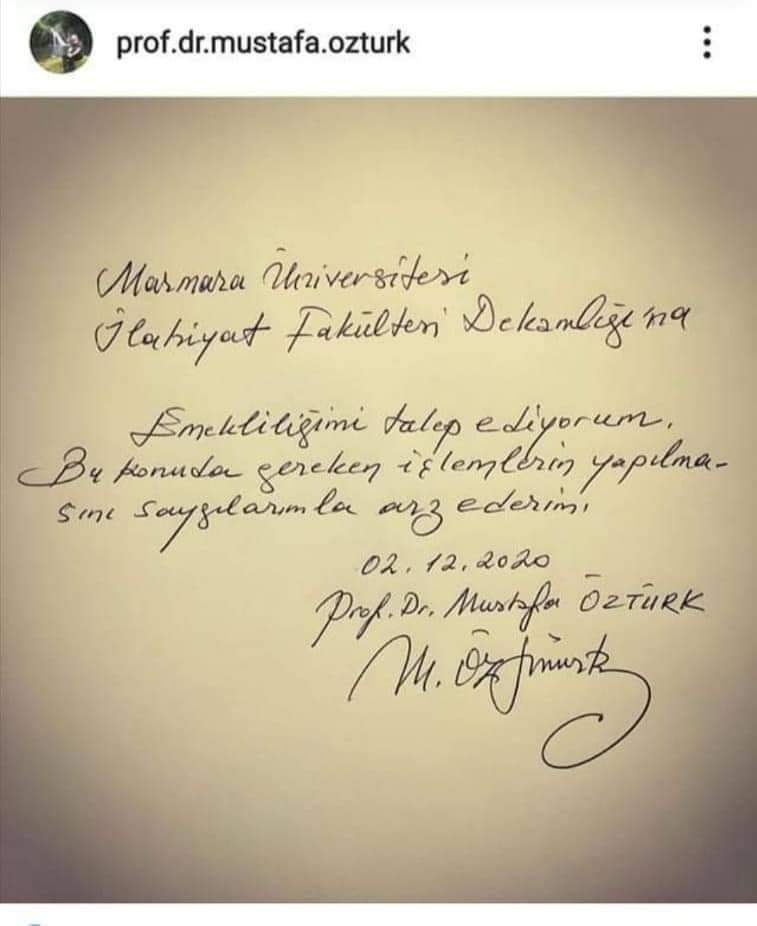 prof.dr.mustafa.ozturk
Marmara Üniversitesi
İlahiyat Fakültesi Dekanlığı'na
Emekliliğimi talep ediyorum.
Bu konuda gereken işlemlerin yapılma-
sını saygılarımla arz ederim.
02.12.2020
Prof. Dr. Mustafa ÖZTÜRK
M. Öztürk